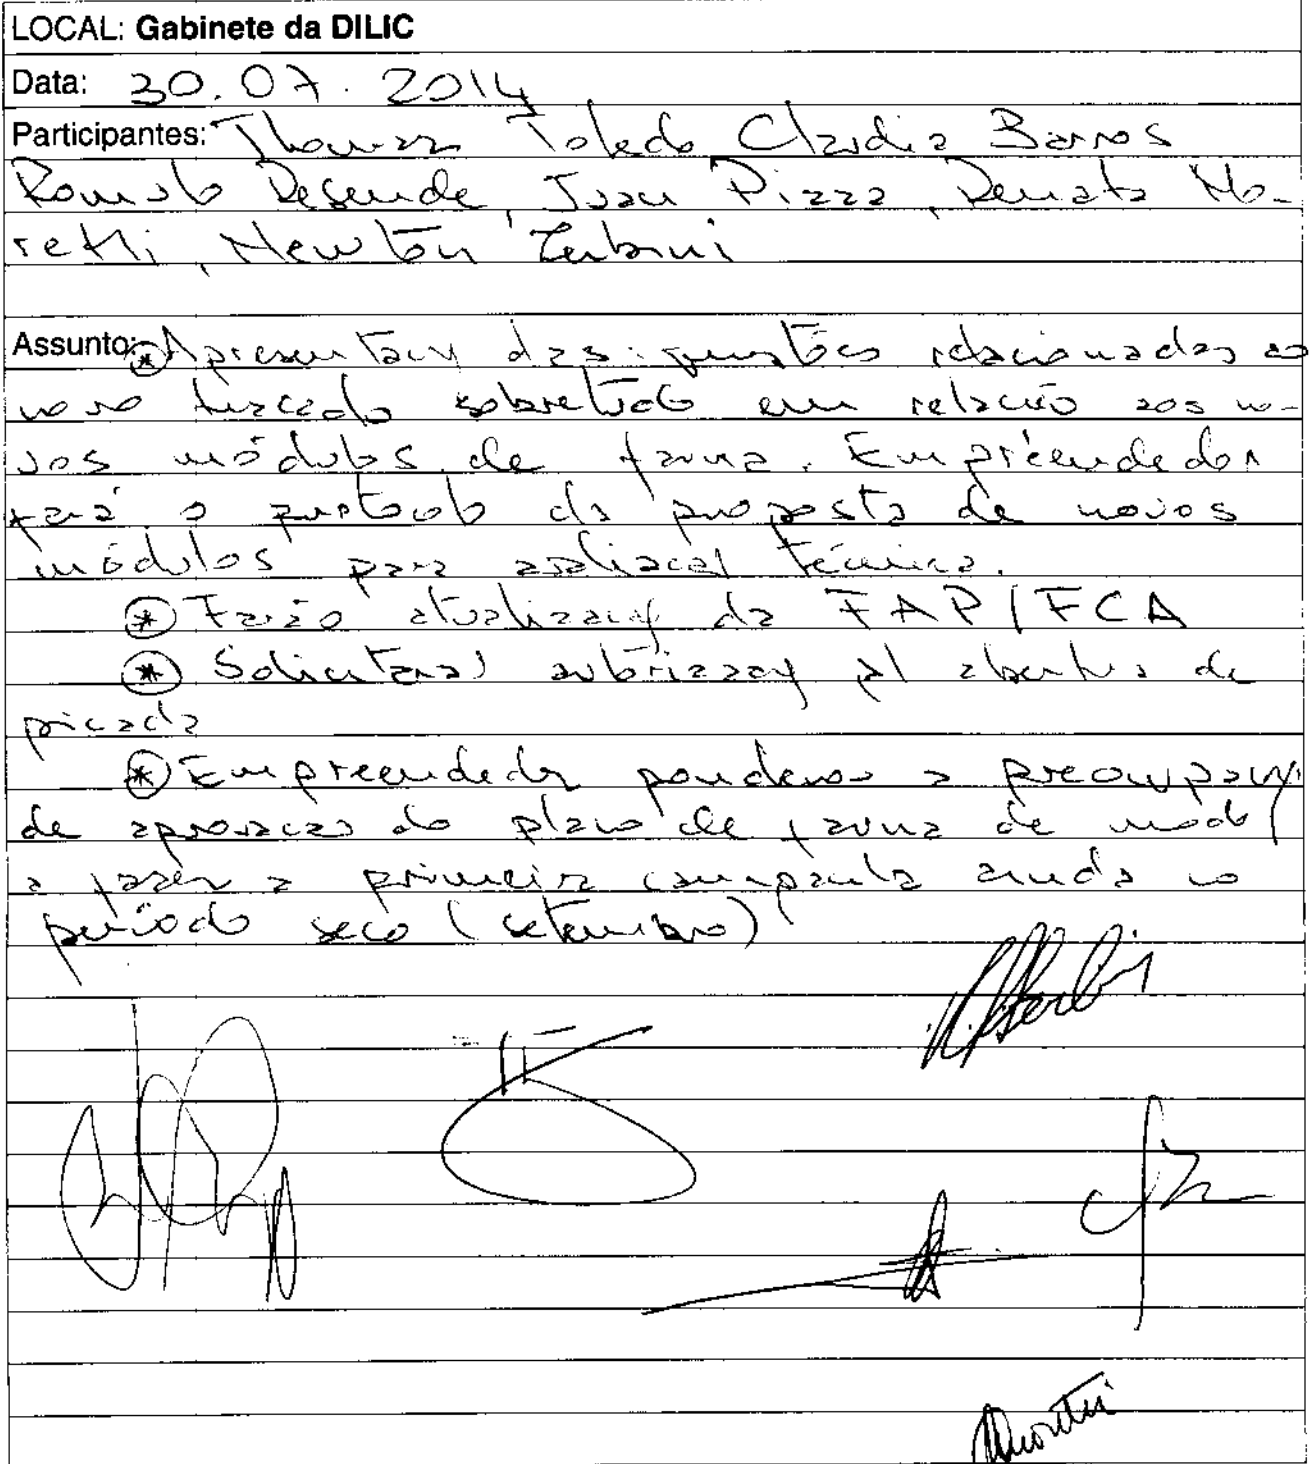 LOCAL: Gabinete da DILIC
Data: 30.07.2014
Participantes: Thomaz Toledo Claudia Barros
Romulo Resende, Juan Pizza, Renata Mo-
retti, Newton Zerbini
Assunto: * Apresentação das questões relacionadas ao
novo traçado sobretudo em relação aos no-
vos módulos de fauna. Empreendedor
fará o protocolo da proposta de novos
módulos para avaliação técnica.
* Farão atualização da FAP/FCA
* Solicitará autorização p/ abertura de
picada
* Empreendedor ponderou a preocupação
de aprovação do plano de fauna de modo
a fazer a primeira campanha ainda no
período seco (setembro)
Moretti